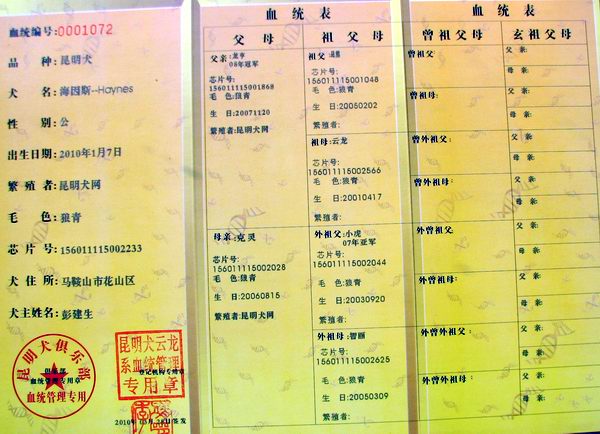 血统编号:0001072
品 种:昆明犬
犬 名:海因斯--Haynes
性 别:公
出生日期:2010年1月7日
繁 殖 者:昆明犬网
毛 色:狼青
芯 片 号:156011115002233
犬 住 所:马鞍山市花山区
犬主姓名:彭建生
昆明犬俱乐部
俱乐部
血统管理专用章
血统管理专用
昆明犬云龙
系血统管理
登记机构专用章
专用章
血统表
父 母
父亲:龙亨
08年冠军
芯片号:
156011115001868
毛 色:狼青
生 日:20071120
繁殖者:昆明犬网
母亲:克灵
芯片号:
156011115002028
毛 色:狼青
生 日:20060815
繁殖者:昆明犬网
祖 父 母
祖父:
芯片号:
156011115001048
毛 色:狼青
生 日:20050202
繁殖者:
祖母:云龙
芯片号:
156011115002566
毛 色:狼青
生 日:20010417
繁殖者:
外祖父:小虎
07年亚军
芯片号:
156011115002044
毛 色:狼青
生 日:20030920
繁殖者:
外祖母:智丽
芯片号:
156011115002625
毛 色:狼青
生 日:20050309
繁殖者:
血统表
曾祖父母
曾祖父:
曾祖母:
曾外祖父:
曾外祖母:
曾祖父:
曾外祖母:
曾外曾祖父:
曾外曾祖母:
玄祖父母
父 亲:
母 亲:
父 亲:
母 亲:
父 亲:
母 亲:
父 亲:
母 亲:
父 亲:
母 亲:
父 亲:
母 亲:
父 亲:
母 亲:
父 亲:
母 亲: